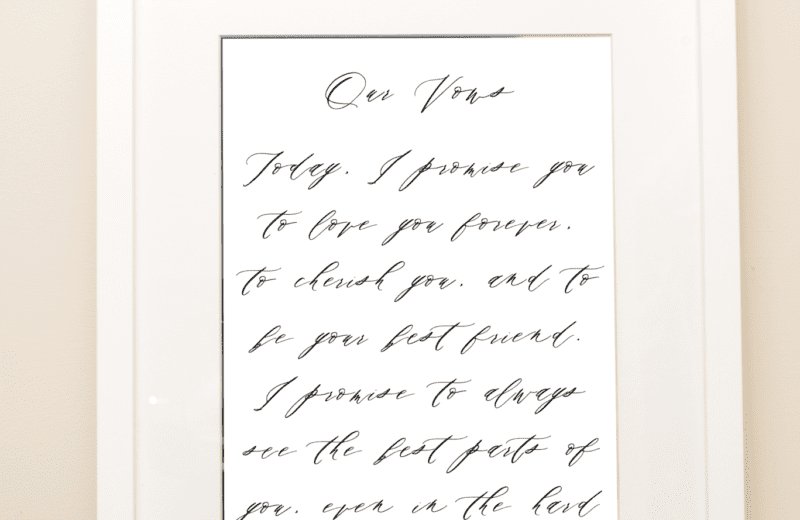 Our Vows
Today, I promise you
to love you forever,
to cherish you, and to
be your best friend.
I promise to always
see the best parts of
you, even in the hard